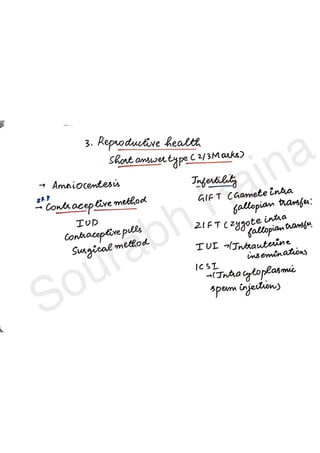 3. Reproductive health
Short answer type (2/3 Marks)
→ Amniocentesis
IMP
→ Contraceptive method
IUD
Contraceptive pills
Surgical method
Infertility
GIFT (Gamete intra
fallopian transfer)
ZIFT (Zygote intra
fallopian transfer
IUI → (Intrauterine
insemination)
ICSI
→ (Intracytoplasmic
sperm injection)
Sourabh Raina